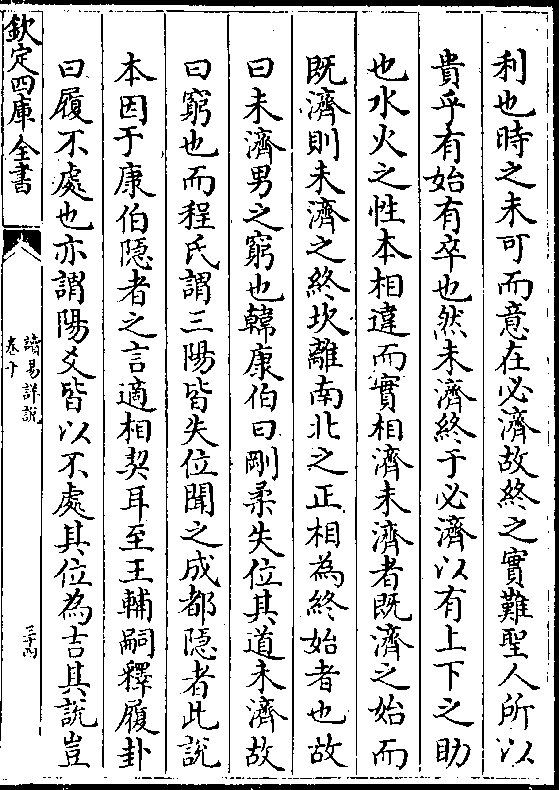 利也時之未可而意在必濟故終之實難聖人所以
貴乎有始有卒也然未濟終于必濟以有上下之助
也水火之性本相違而實相濟未濟者既濟之始而
既濟則未濟之終坎離南北之正相為終始者也故
曰未濟男之窮也韓康伯曰剛柔失位其道未濟故
曰窮也而程氏謂三陽皆失位聞之成都隱者此說
本因于康伯隱者之言適相契耳至王輔嗣釋履卦
曰履不處也亦謂陽爻皆以不處其位為吉其說豈
欽定四庫全書
讀易詳說
卷十
三十四